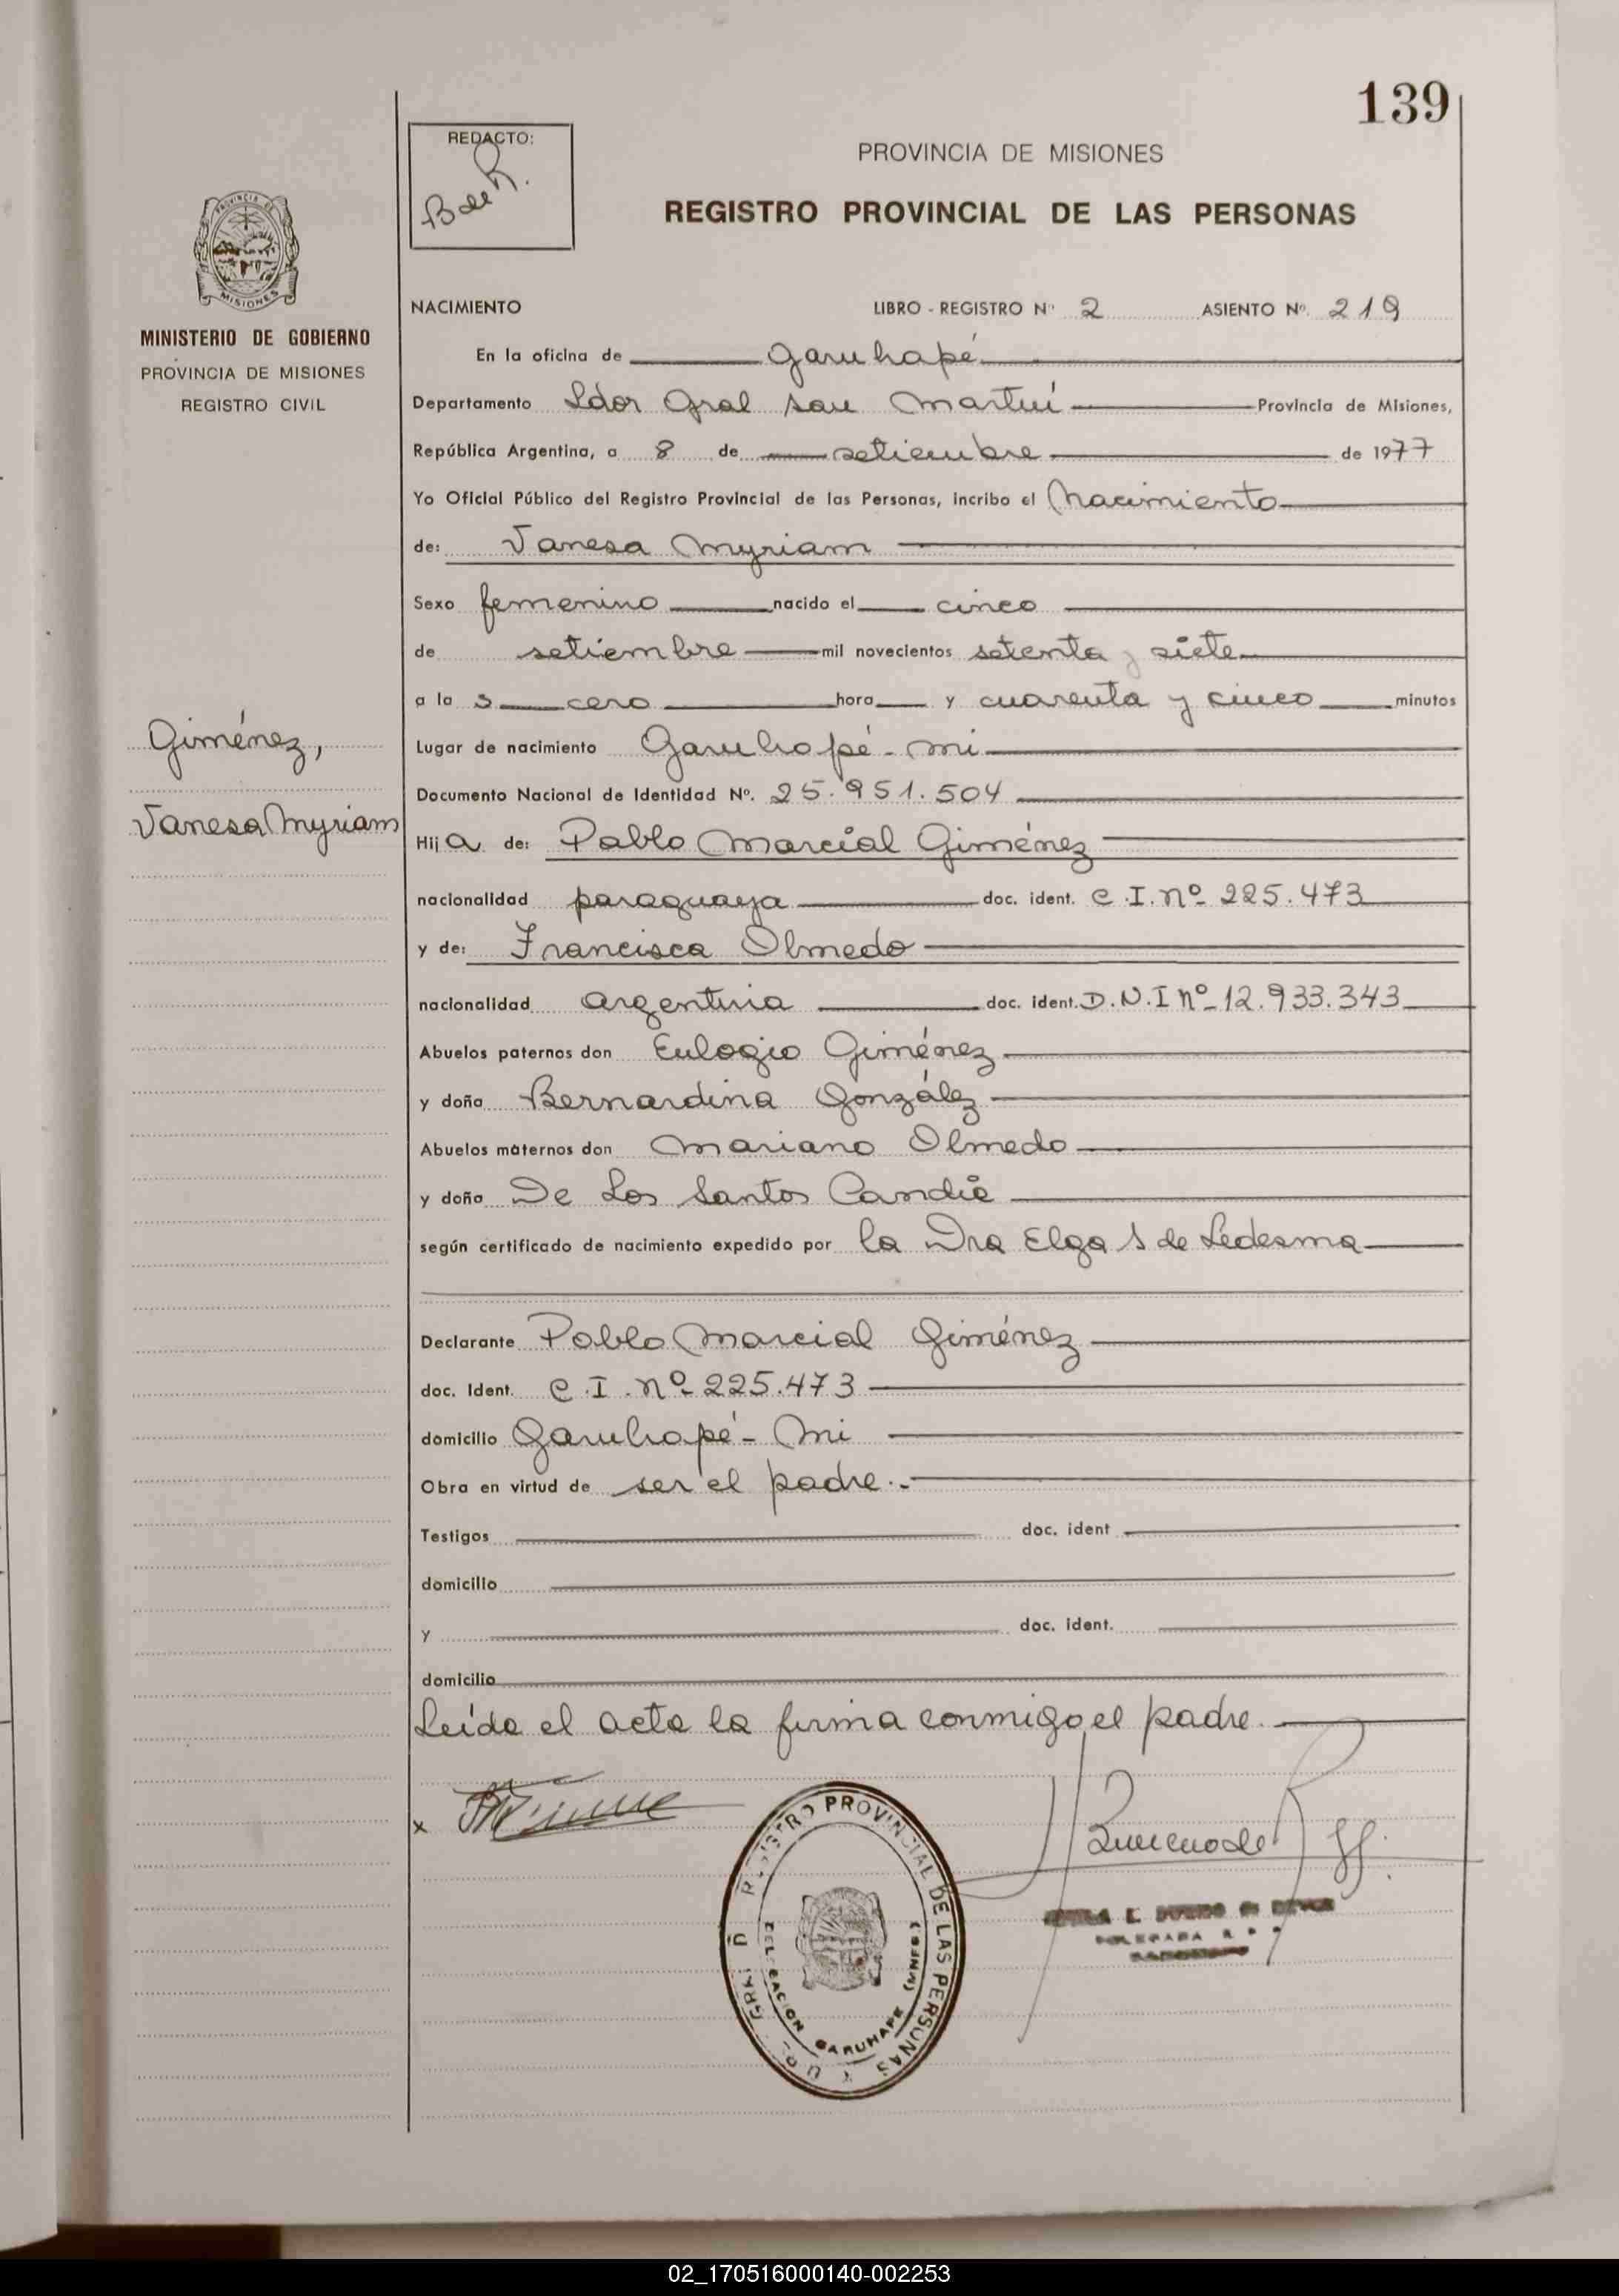 139
REDACTO:
B de R.
PROVINCIA DE MISIONES
REGISTRO PROVINCIAL DE LAS PERSONAS
PROVINCIA DE
MISIONES
MINISTERIO DE GOBIERNO
PROVINCIA DE MISIONES
REGISTRO CIVIL
NACIMIENTO LIBRO - REGISTRO Nº 2 ASIENTO Nº. 219
En la oficina de Garuhapé
Departamento Ldor Gral San Martín Provincia de Misiones,
República Argentina, a 8 de setiembre de 1977
Yo Oficial Público del Registro Provincial de las Personas, incribo el Nacimiento
de: Vanesa Myriam
Sexo femenino nacido el cinco
de setiembre mil novecientos setenta y siete
a la s cero hora y cuarenta y cinco minutos
Giménez,
Vanesa Myriam
Lugar de nacimiento Garuhapé - mi
Documento Nacional de Identidad Nº. 25.951.504
Hij a de: Pablo Marcial Giménez
nacionalidad paraguaya doc. ident. C.I. Nº 225.473
y de: Francisca Olmedo
nacionalidad argentina doc. ident. D.N.I Nº 12.933.343
Abuelos paternos don Eulogio Giménez
y doña Bernardina González
Abuelos maternos don Mariano Olmedo
y doña De Los Santos Candia
según certificado de nacimiento expedido por la Dra Elga S de Ledesma
Declarante Pablo Marcial Giménez
doc. Ident. C.I. Nº 225.473
domicilio Garuhapé - Mi
Obra en virtud de ser el padre.-
Testigos doc. ident
domicilio
y doc. ident.
domicilio
Leída el acta la firma conmigo el padre.
x
REGISTRO PROVINCIAL DE LAS PERSONAS
DELEGACION GARUHAPE (MNES)
02_170516000140-002253